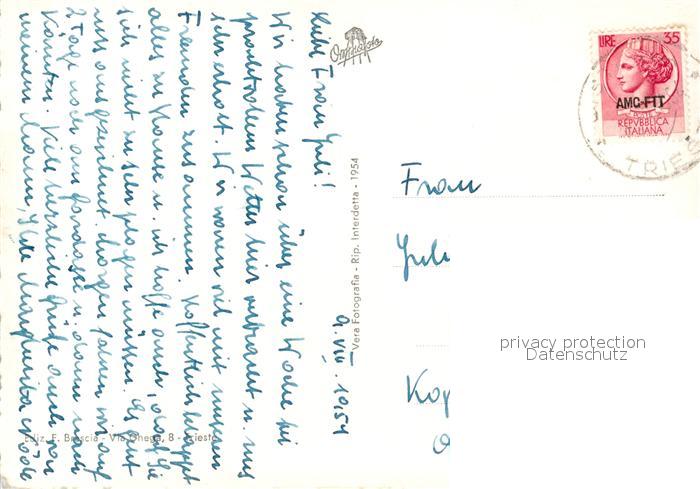 9. VIII. 1954
Liebe Frau Juli!
Wir haben schon über eine Woche bei
prachtvollem Wetter hier verbracht u. uns
sehr erholt. Wir waren viel mit unseren
Freunden zusammen. Hoffentlich klappt
alles zu Hause u. ich hoffe auch, dass Sie
sich nicht zu sehr plagen müssen. Es geht
uns ausgezeichnet. Morgen fahren wir auf
2 Tage noch am Gardasee u. dann nach
Kärnten. Viele herzliche Grüße auch von
meinem Mann, Ihre Margarita
Vera Fotografia - Rip. Interdetta - 1954
Ediz. F. Brescia - Via Ghega, 8 - Trieste
LIRE 35
AMG-FTT
POSTE
REPVBBLICA
ITALIANA
TRIES
Frau
Juli
privacy protection
Datenschutz